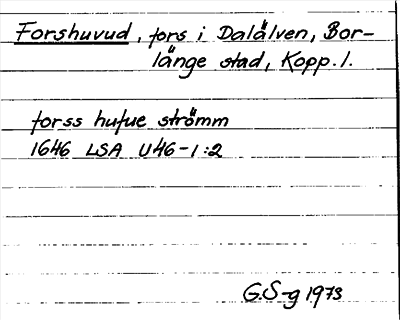 Forshuvud, fors i Dalälven, Bor-
länge stad, Kopp. l.
forss hufue strömm
1646 LSA U46-1:2
G.S-g 1973